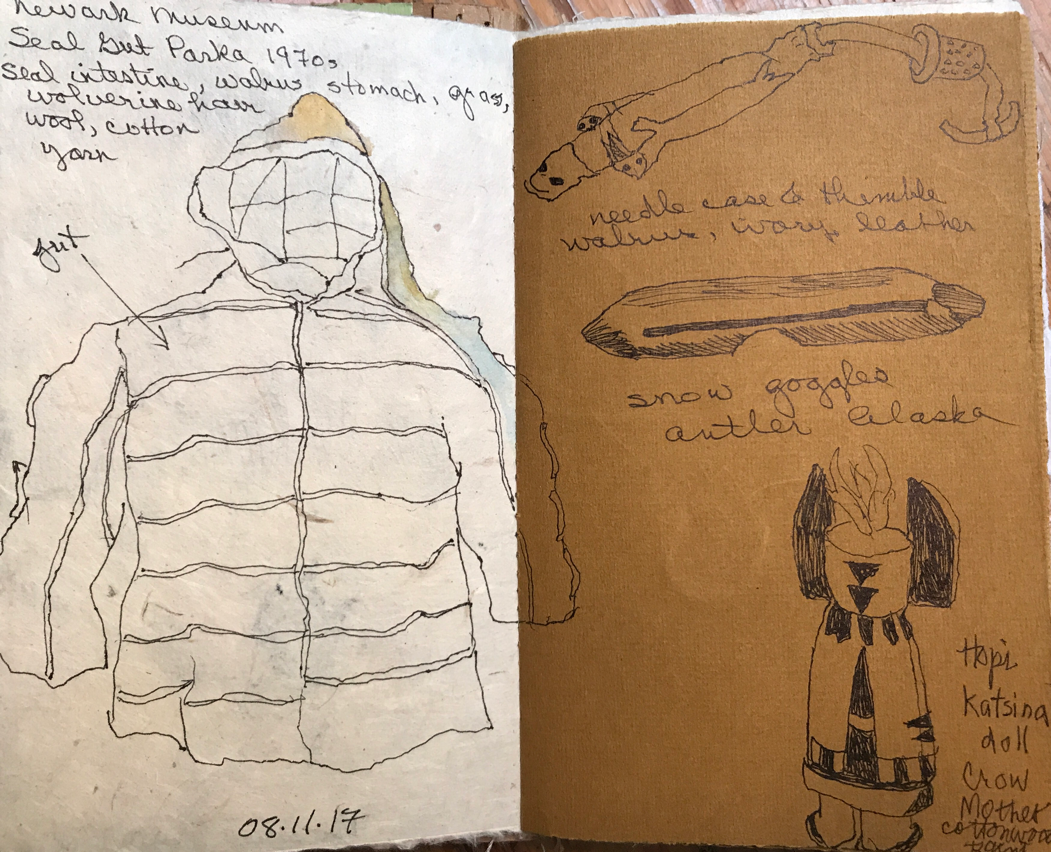 Newark Museum
Seal Gut Parka 1970s
Seal intestine, walrus stomach, grass,
wolverine hair
wool, cotton
yarn
gut
08.11.17
needle case & thimble
walrus, ivory leather
snow goggles
antler Alaska
Hopi
Katsina
doll
Crow
Mother
cottonwood